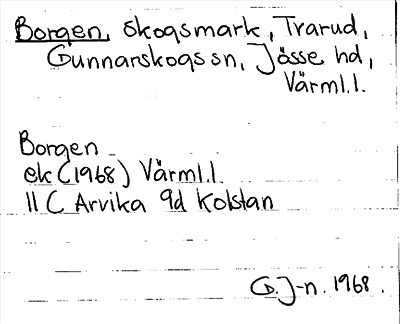 Borgen, skogsmark, Trarud,
Gunnarskogs sn, Jösse hd,
Värml.l.
Borgen
ek (1968) Värml.l.
11 C Arvika 9d Kolstan
G. J-n. 1968.